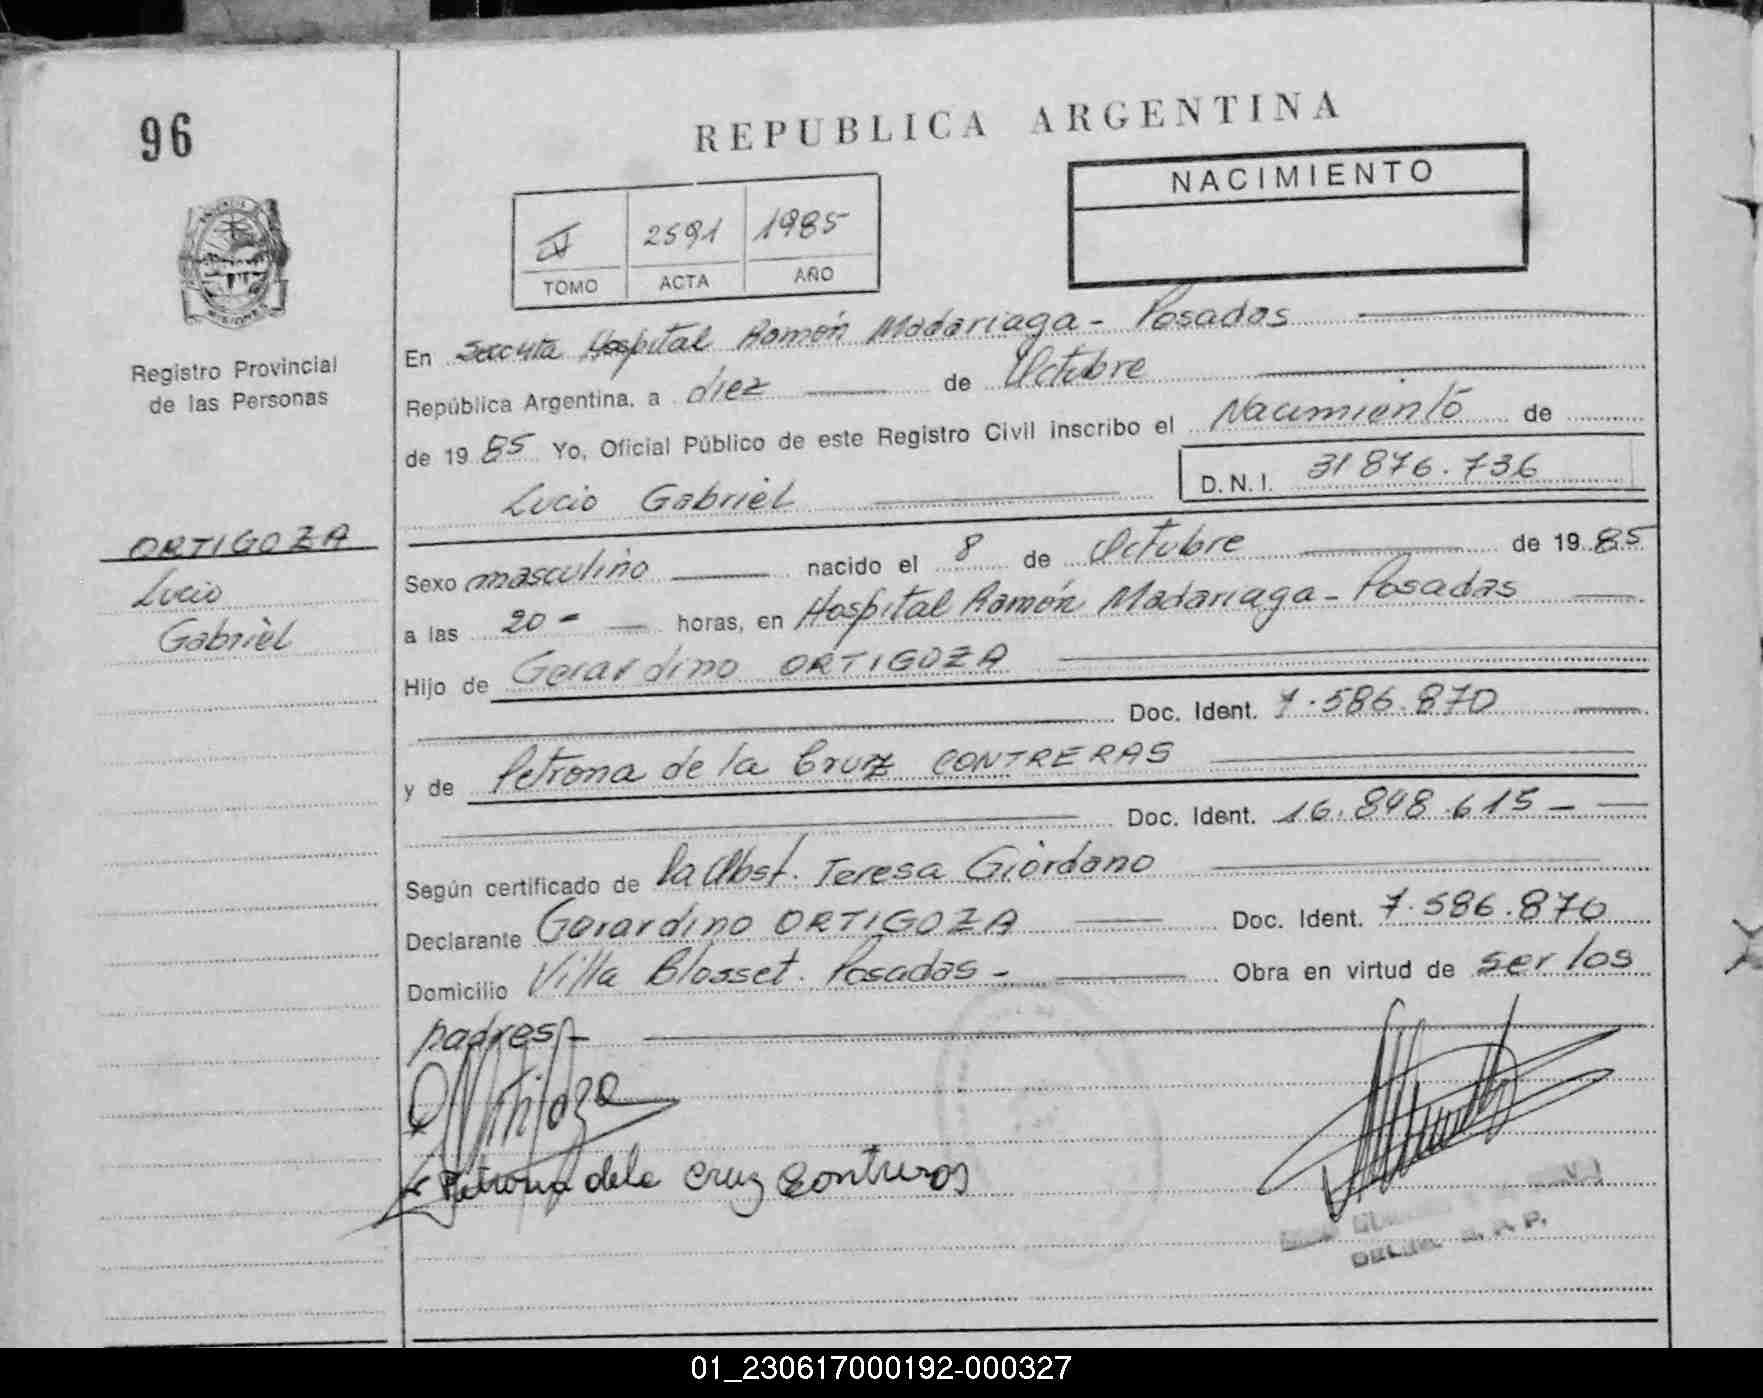 96
REPUBLICA ARGENTINA
NACIMIENTO
2591 1985
TOMO ACTA AÑO
PROVINCIA DE MISIONES
Registro Provincial
de las Personas
En Hospital Ramón Madariaga - Posadas
República Argentina, a diez de Octubre
de 1985 Yo, Oficial Público de este Registro Civil inscribo el Nacimiento de
Lucio Gabriel D.N.I. 31876.736
ORTIGOZA
Lucio
Gabriel
Sexo masculino nacido el 8 de Octubre de 1985
a las 20 - horas, en Hospital Ramón Madariaga - Posadas
Hijo de Gerardino ORTIGOZA
Doc. Ident. 7.586.870
y de Petrona de la Cruz CONTRERAS
Doc. Ident. 16.848.615 -
Según certificado de la Obst. Teresa Giordano
Declarante Gerardino ORTIGOZA Doc. Ident. 7.586.870
Domicilio Villa Blosset. Posadas - Obra en virtud de ser los
padres -
Ortigoza
Petrona dela Cruz Contreras
01_230617000192-000327